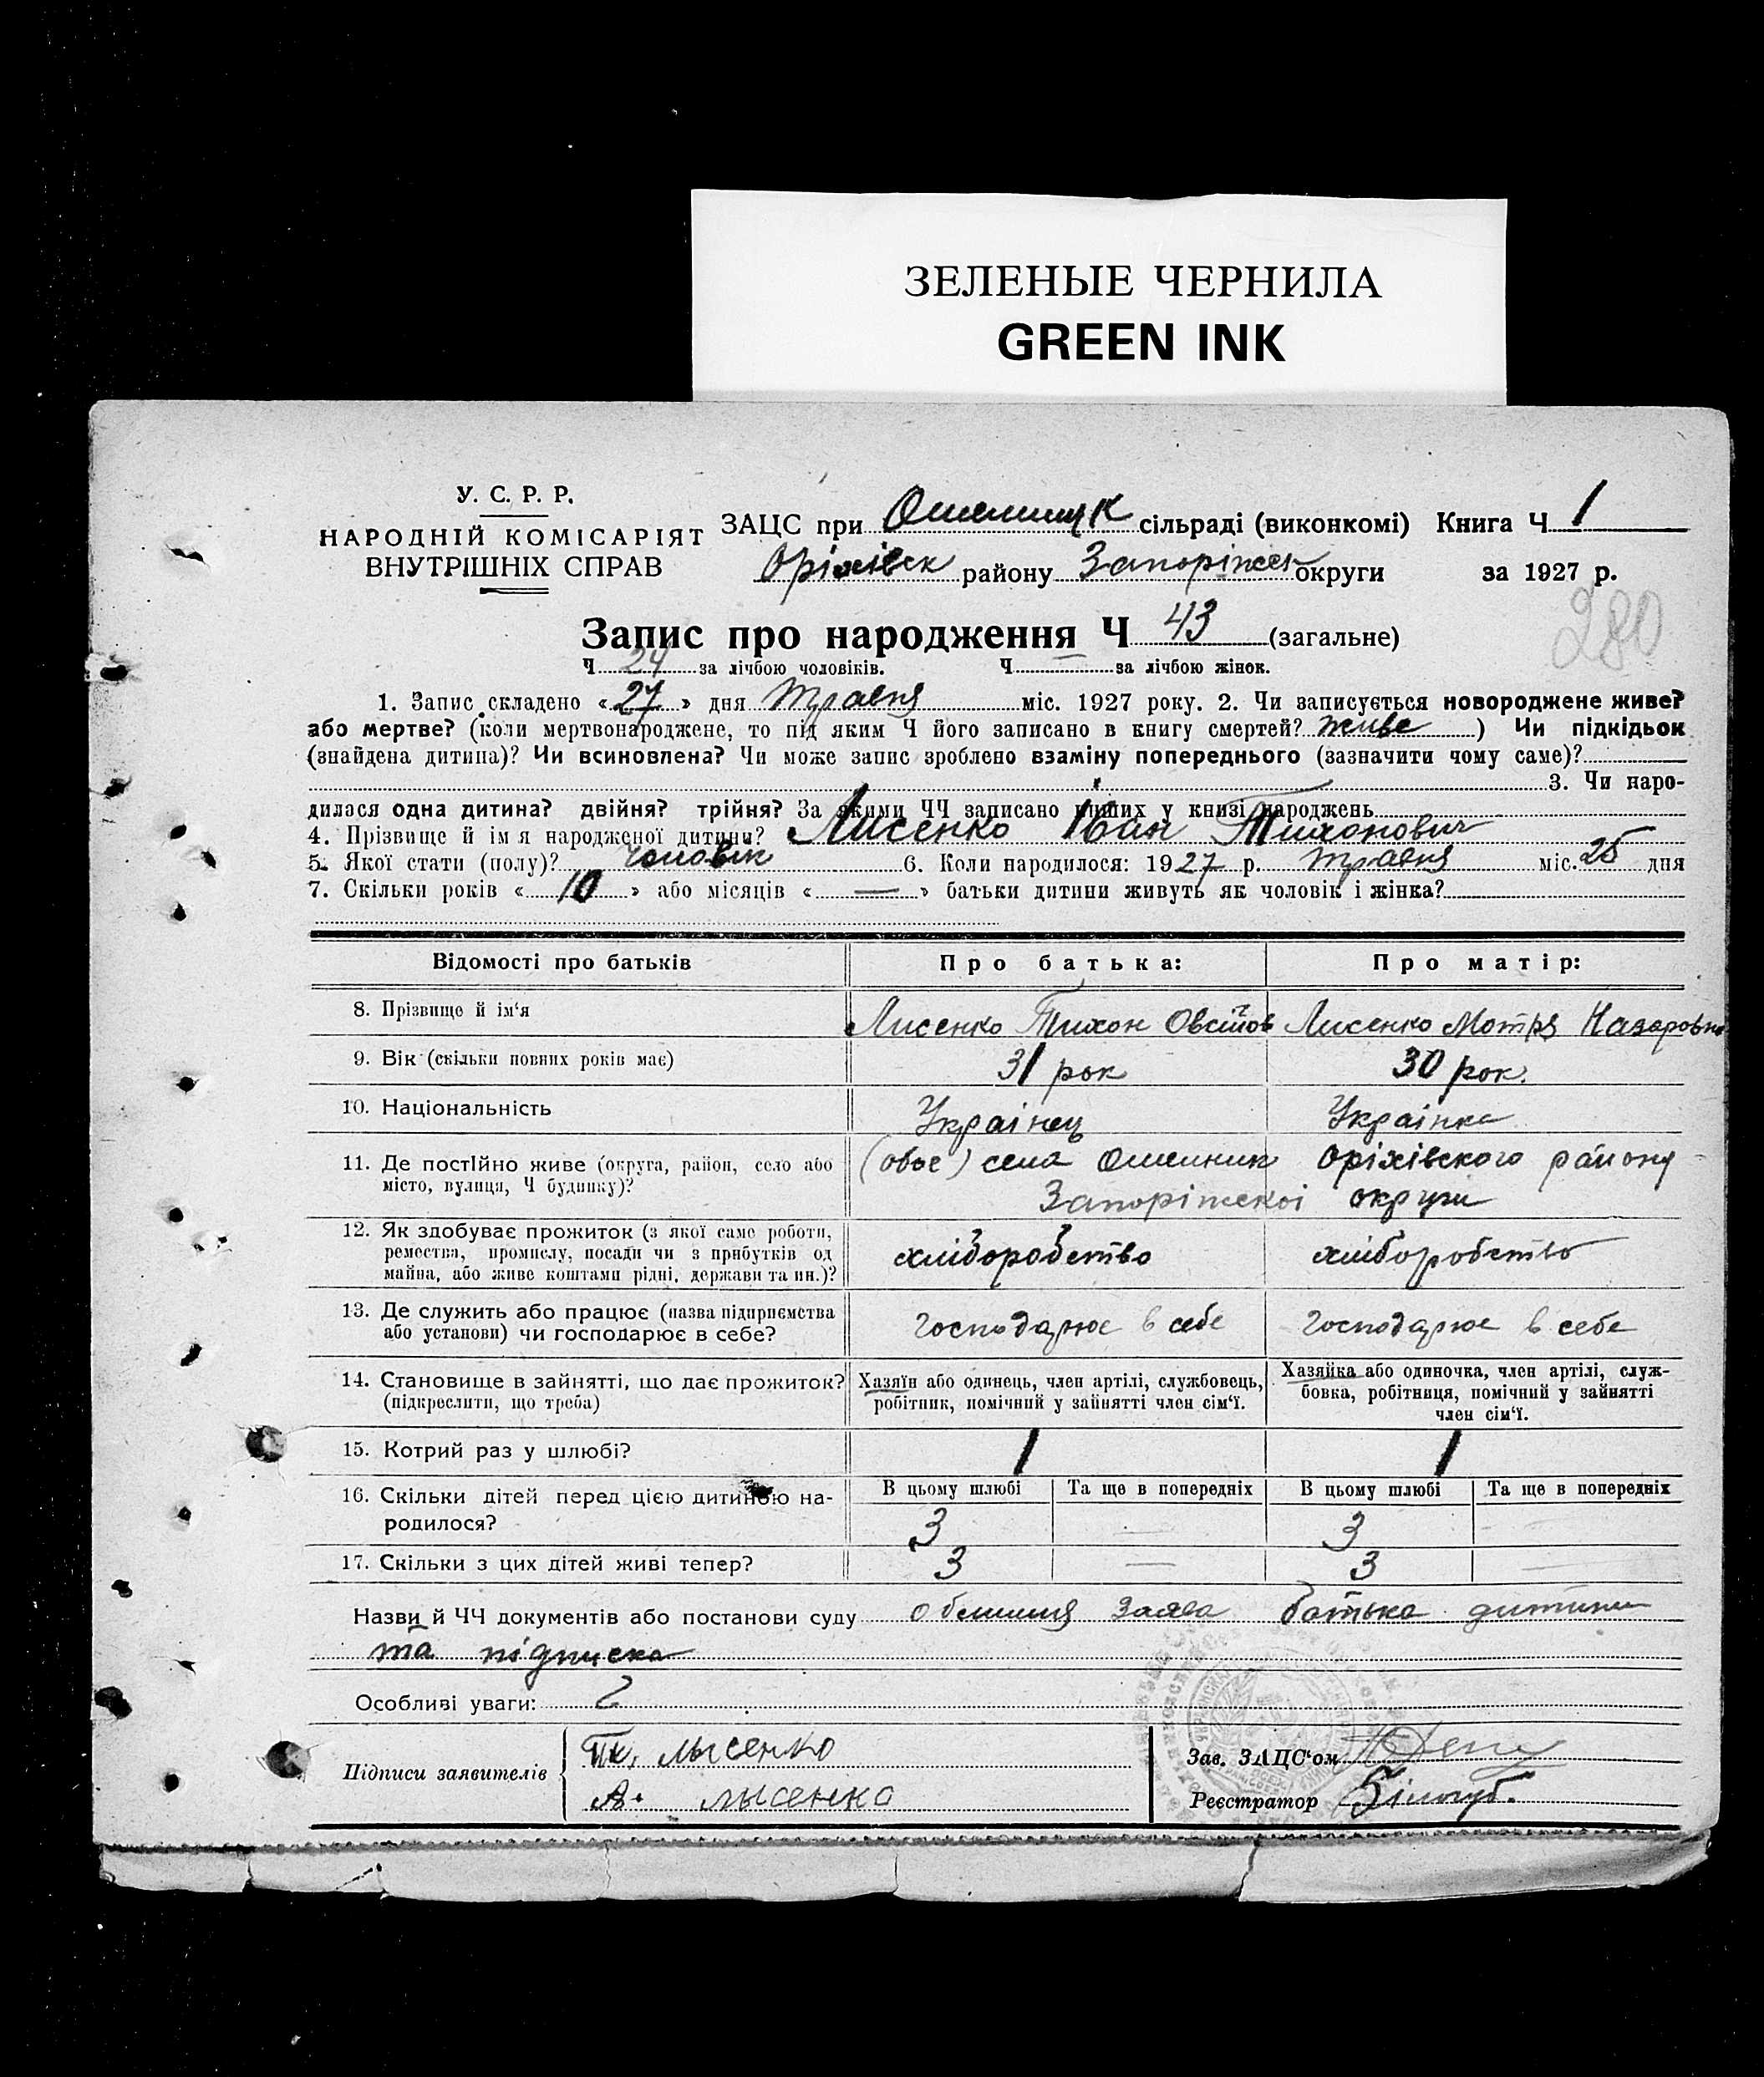 ЗЕЛЕНЫЕ ЧЕРНИЛА
GREEN INK
У. С. Р. Р.
НАРОДНІЙ КОМІСАРІЯТ
ВНУТРІШНІХ СПРАВ
ЗАЦС при сільраді (виконкомі) Книга Ч 1
Оріхівск району Запоріжск округи за 1927 р.
280
Запис про народження Ч 43 (загальне)
Ч 24 за лічбою чоловіків. Ч — за лічбою жінок.
1. Запис складено «27» дня Травня міс. 1927 року. 2. Чи записується новороджене живе?
або мертве? (коли мертвонароджене, то під яким Ч його записано в книгу смертей? живе ) Чи підкідьок
(знайдена дитина)? Чи всиновлена? Чи може запис зроблено взаміну попереднього (зазначити чому саме)?
3. Чи наро-
дилася одна дитина? двійня? трійня? За якими ЧЧ записано інших у книзі народжень
4. Прізвище й ім я народженої дитини? Лисенко Іван Тихонович
5. Якої стати (полу)? чоловік 6. Коли народилося: 1927 р. травня міс. 25 дня
7. Скільки років «10» або місяців «—» батьки дитини живуть як чоловік і жінка?
Відомості про батьків Про батька: Про матір:
8. Прізвище й ім'я Лисенко Тихон Лисенко Мотря Назаровна
9. Вік (скільки повних років має) 31 рок 30 рок.
10. Національність Украінец Украінка
11. Де постійно живе (округа, район, село або (обоє) села Омельник Оріхівского району
місто, вулиця, Ч будинку)? Запоріжскоі округи
12. Як здобуває прожиток (з якої саме роботи,
ремества, промислу, посади чи з прибутків од хліборобство хліборобство
майна, або живе коштами рідні, держави та ин.)?
13. Де служить або працює (назва підприємства господарює в себе господарює в себе
або установи) чи господарює в себе?
14. Становище в зайнятті, що дає прожиток? Хазяїн або одинець, член артілі, службовець, Хазяйка або одиночка, член артілі, служ-
(підкреслити, що треба) робітник, помічний у зайнятті член сім'ї. бовка, робітниця, помічний у зайнятті
член сім'ї.
15. Котрий раз у шлюбі? 1 1
16. Скільки дітей перед цією дитиною на- В цьому шлюбі Та ще в попередніх В цьому шлюбі Та ще в попередніх
родилося? 3 — 3 —
17. Скільки з цих дітей живі тепер? 3 — 3 —
Назви й ЧЧ документів або постанови суду заява батька дитини
та підписка
Особливі уваги:
Підписи заявителів лысенко
А. лысенко
Зав. ЗАЦС'ом
Реєстратор